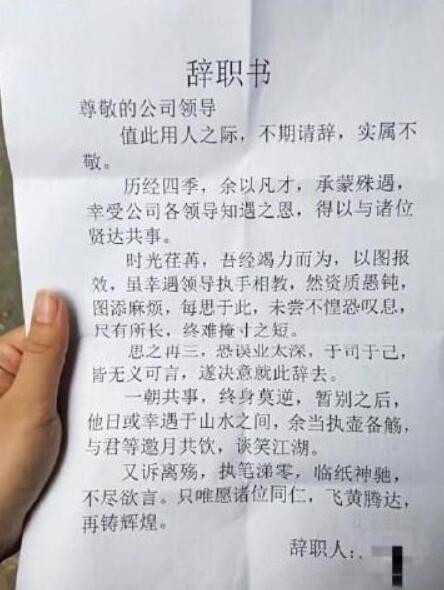 辞职书
尊敬的公司领导
值此用人之际，不期请辞，实属不
敬。
历经四季，余以凡才，承蒙殊遇，
幸受公司各领导知遇之恩，得以与诸位
贤达共事。
时光荏苒，吾经竭力而为，以图报
效，虽幸遇领导执手相教，然资质愚钝，
图添麻烦，每思于此，未尝不惶恐叹息，
尺有所长，终难掩寸之短。
思之再三，恐误业太深，于司于己，
皆无义可言，遂决意就此辞去。
一朝共事，终身莫逆，暂别之后，
他日或幸遇于山水之间，余当执壶备觞，
与君等邀月共饮，谈笑江湖。
又诉离殇，执笔涕零，临纸神驰，
不尽欲言。只唯愿诸位同仁，飞黄腾达，
再铸辉煌。
辞职人：